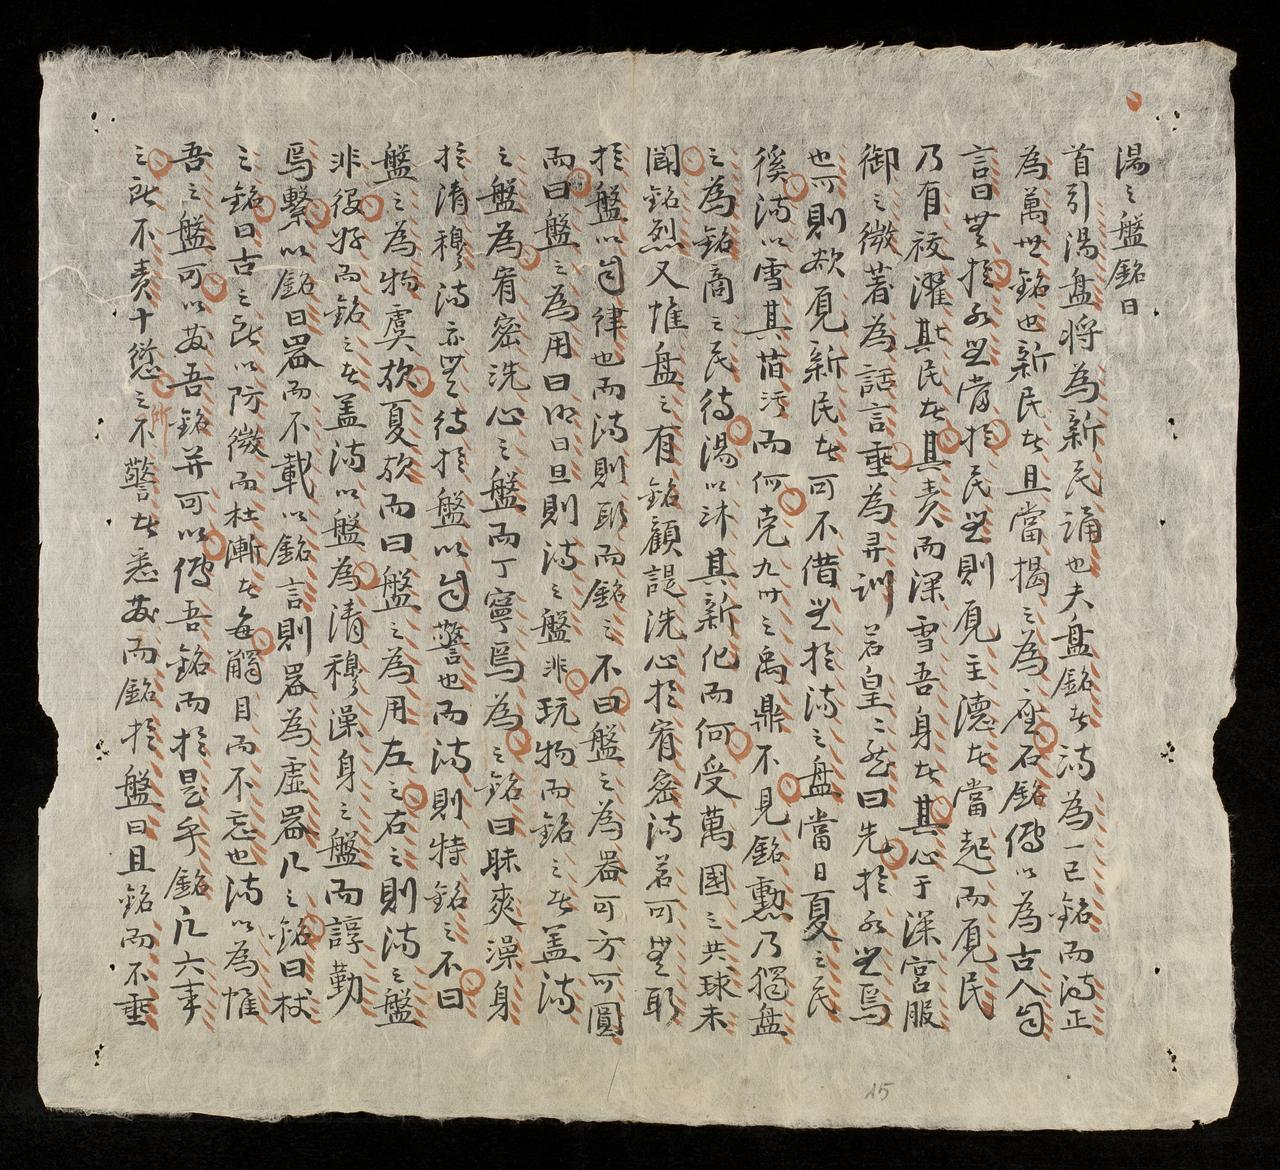 湯之盤銘曰
首引湯盤将為新民誦也夫盘銘者湯為一己銘而湯正
為萬世銘也新民者且當揭之為座右銘傳以為古人自
言曰無於水然當於民然則覓主德者當起而覓民
乃有祓濯其民者其責而深雪吾身者其心于深宫服
御之微著為話言垂為彛訓若皇皇然曰先於水然焉
也可則欲覓新民者可不借然於湯之盘當日夏之民
徯湯以雪其舊污而何克九州之禹鼎不見銘勲乃獨盘
之為銘商之民待湯以沐其新化而何受萬國之共球未
聞銘烈又惟盘之有銘顧諟洗心於宥密湯若可無取
於盤以自律也而湯則取而銘之不曰盤之為器可方可圓
而曰盤之為用曰明曰旦則湯之盤非玩物而銘之者盖湯
之盤為宥密洗心之盤而丁寧焉為之銘曰昧爽澡身
於清穆湯亦無待於盤以自警也而湯則特銘之不曰
盤之為物虞欤夏欤而曰盤之為用左之右之則湯之盤
非役好而銘之者盖湯以盤為清穆澡身之盤而諄勤
焉繫以銘曰器而不載以銘言則器為虚器几之銘曰杖
之銘曰古之所以防微而杜漸者每觸目而不忘也湯以為惟
吾之盤可以發吾銘并可以傳吾銘而於是乎銘凡六事
之所不責十愆之所不警者悉發而銘於盤曰且銘而不垂
25